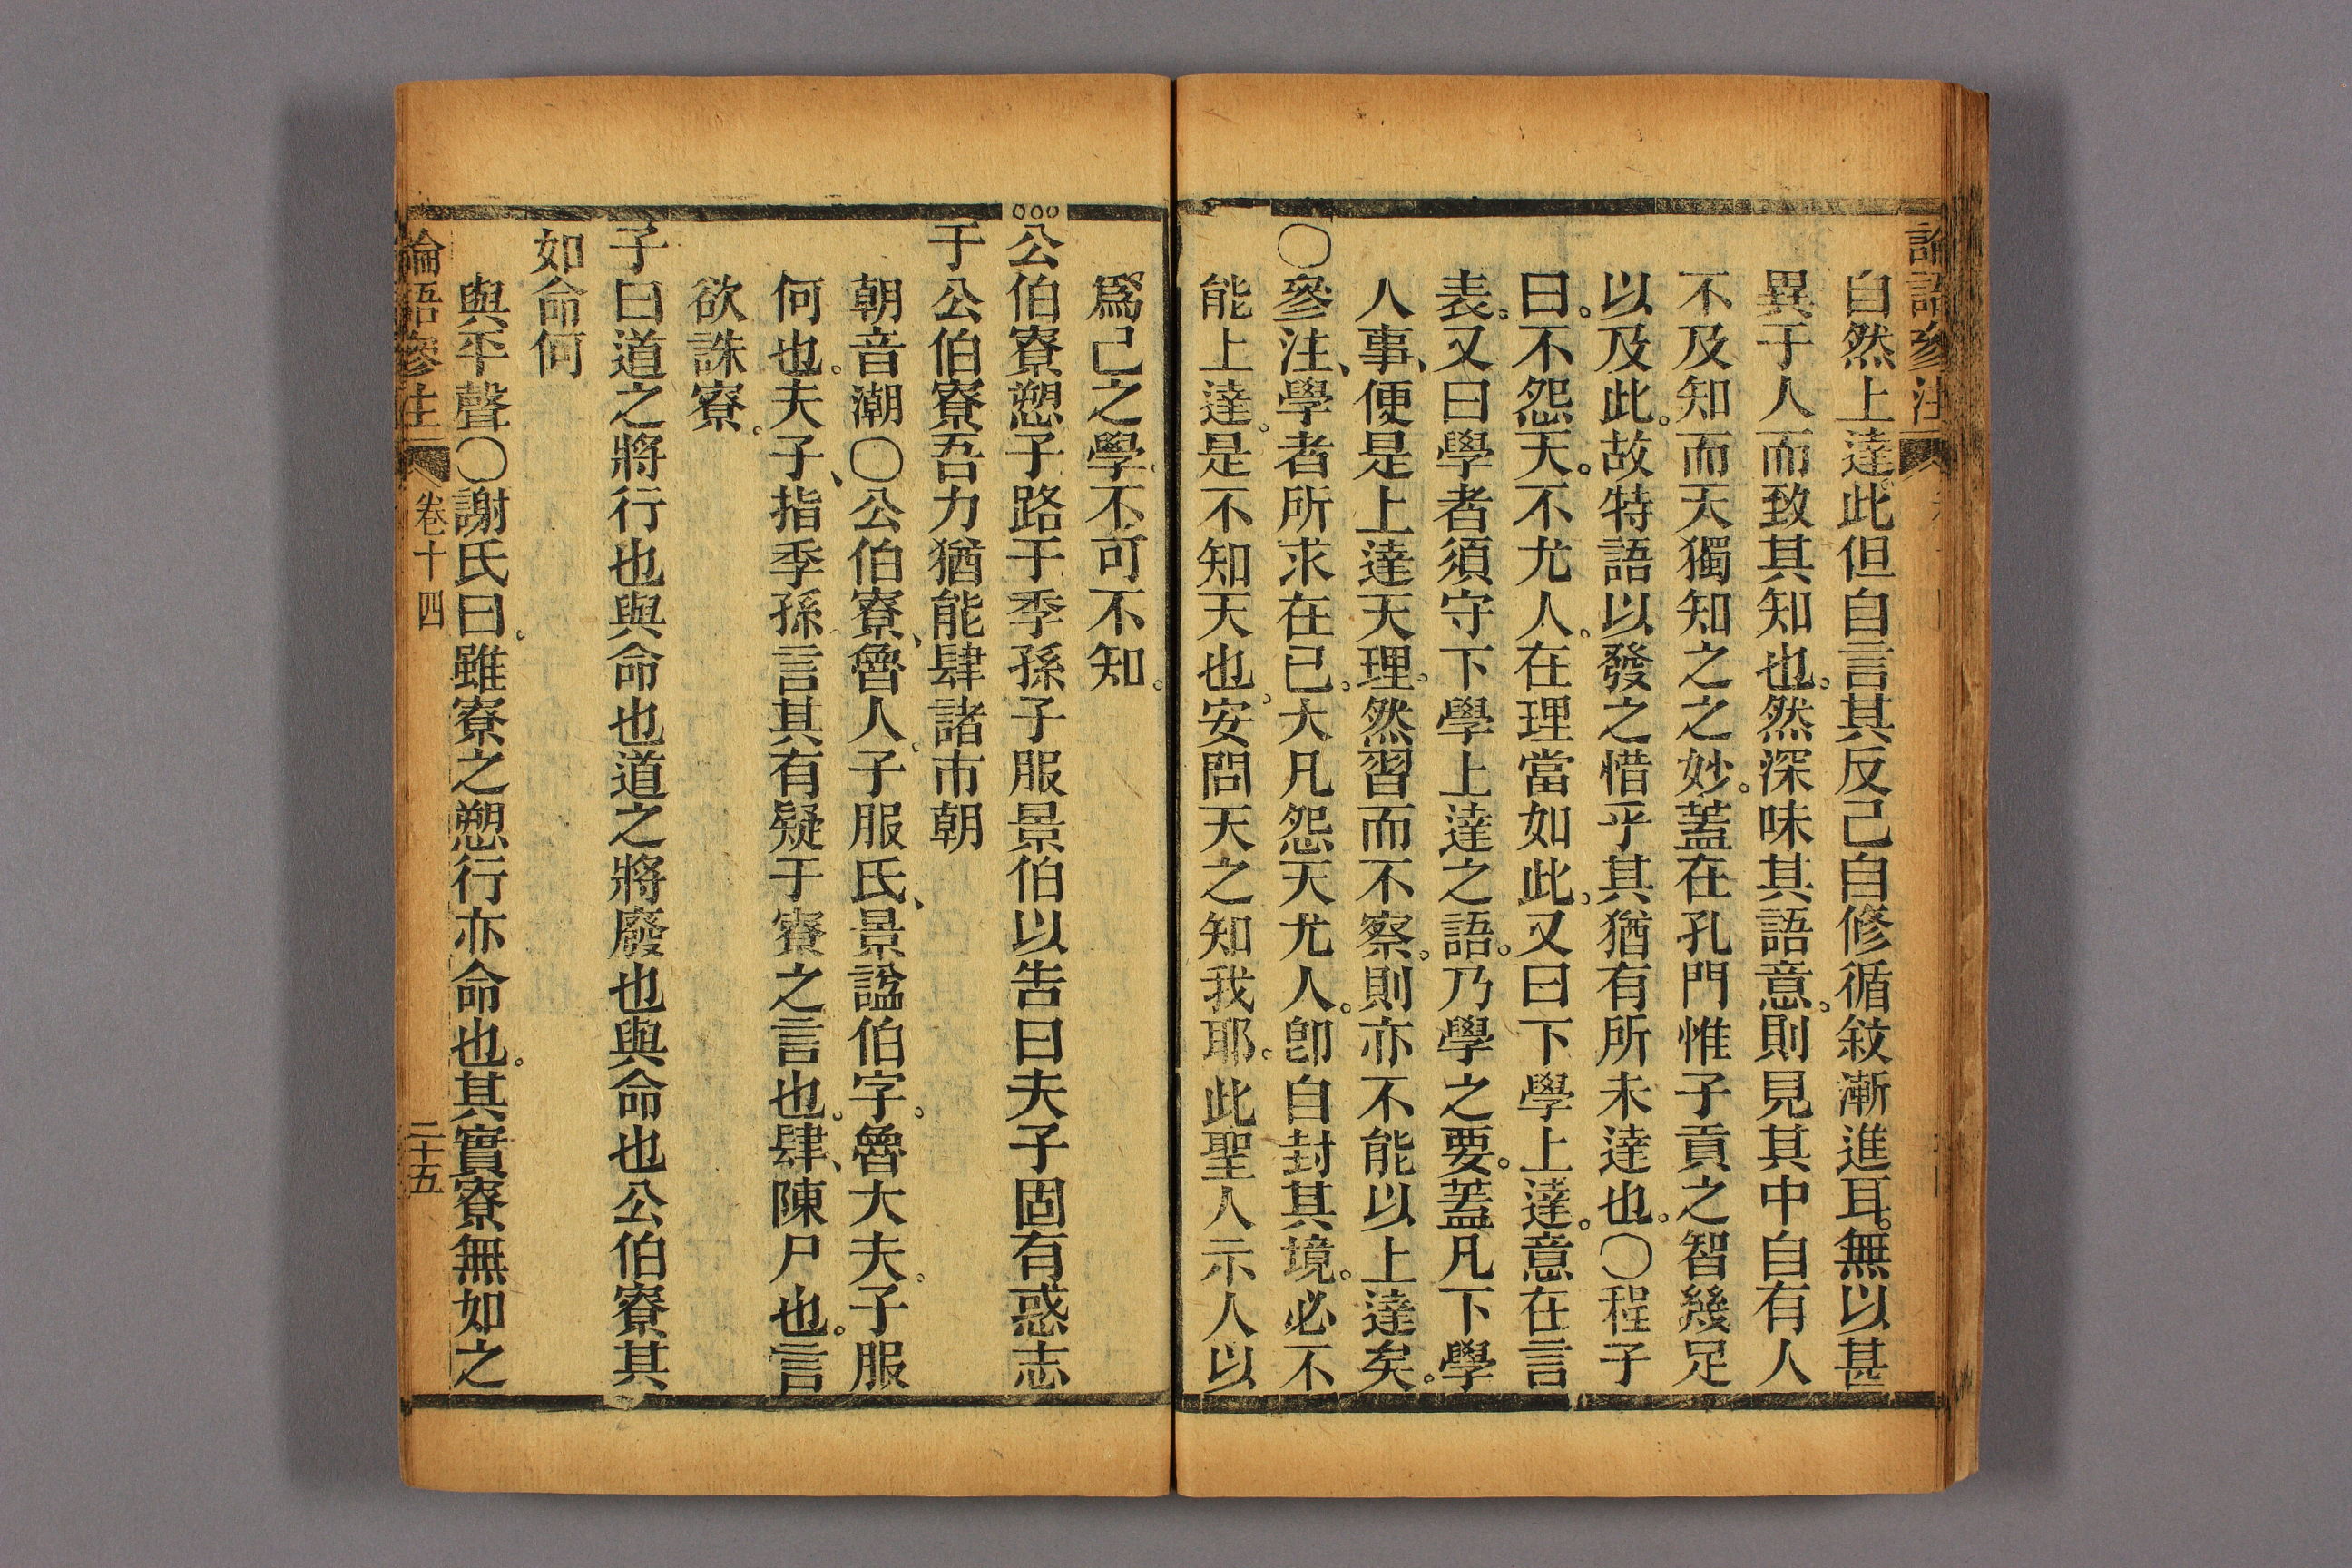 論語參注
自然上達。此但自言其反己自修循敘漸進耳。無以甚
異于人而致其知也。然深味其語意。則見其中自有人
不及知而天獨知之之妙。蓋在孔門惟子貢之智幾足
以及此。故特語以發之惜乎其猶有所未達也。○程子
曰。不怨天。不尤人。在理當如此。又曰下學上達。意在言
表。又曰學者須守下學上達之語。乃學之要。蓋凡下學
人事、便是上達天理。然習而不察。則亦不能以上達矣。
○參注、學者所求在己。大凡怨天尤人。卽自封其境。必不
能上達。是不知天也。安問天之知我耶。此聖人示人以
爲己之學。不可不知。
公伯寮愬子路于季孫子服景伯以告曰夫子固有惑志
于公伯寮吾力猶能肆諸市朝
朝音潮○公伯寮、魯人。子服氏、景諡伯字。魯大夫。子服
何也。夫子、指季孫。言其有疑于寮之言也。肆、陳尸也。言
欲誅寮。
子曰道之將行也與命也道之將廢也與命也公伯寮其
如命何
與平聲○謝氏曰。雖寮之愬行亦命也。其實寮無如之
論語參注 卷十四 二十五